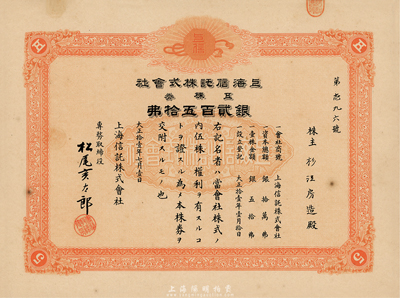 上海信託株式會社
五株券
銀貳百五拾弗
第　九六號
株主 杉江房造殿
一會社商號 上海信託株式會社
一資本總額 銀拾萬弗
一壹株金額 銀五拾弗
一設立登記 大正拾壹年壹月拾日
右記名者ハ當會社株式ノ
内五株ノ權利ヲ有スルコ
トヲ證スル爲メ本株券ヲ
交附スルモノ也
大正拾壹年七月壹日
上海信託株式會社
專務取締役
松尾
5
5